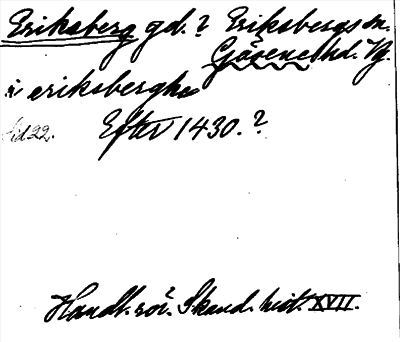 Eriksberg gd.? Eriksbergs sn.
Gäsene hd. Vg.
i eriksbergha
Sid 22. Efter 1430.?
Handl. rör. Skand. hist. XVII.